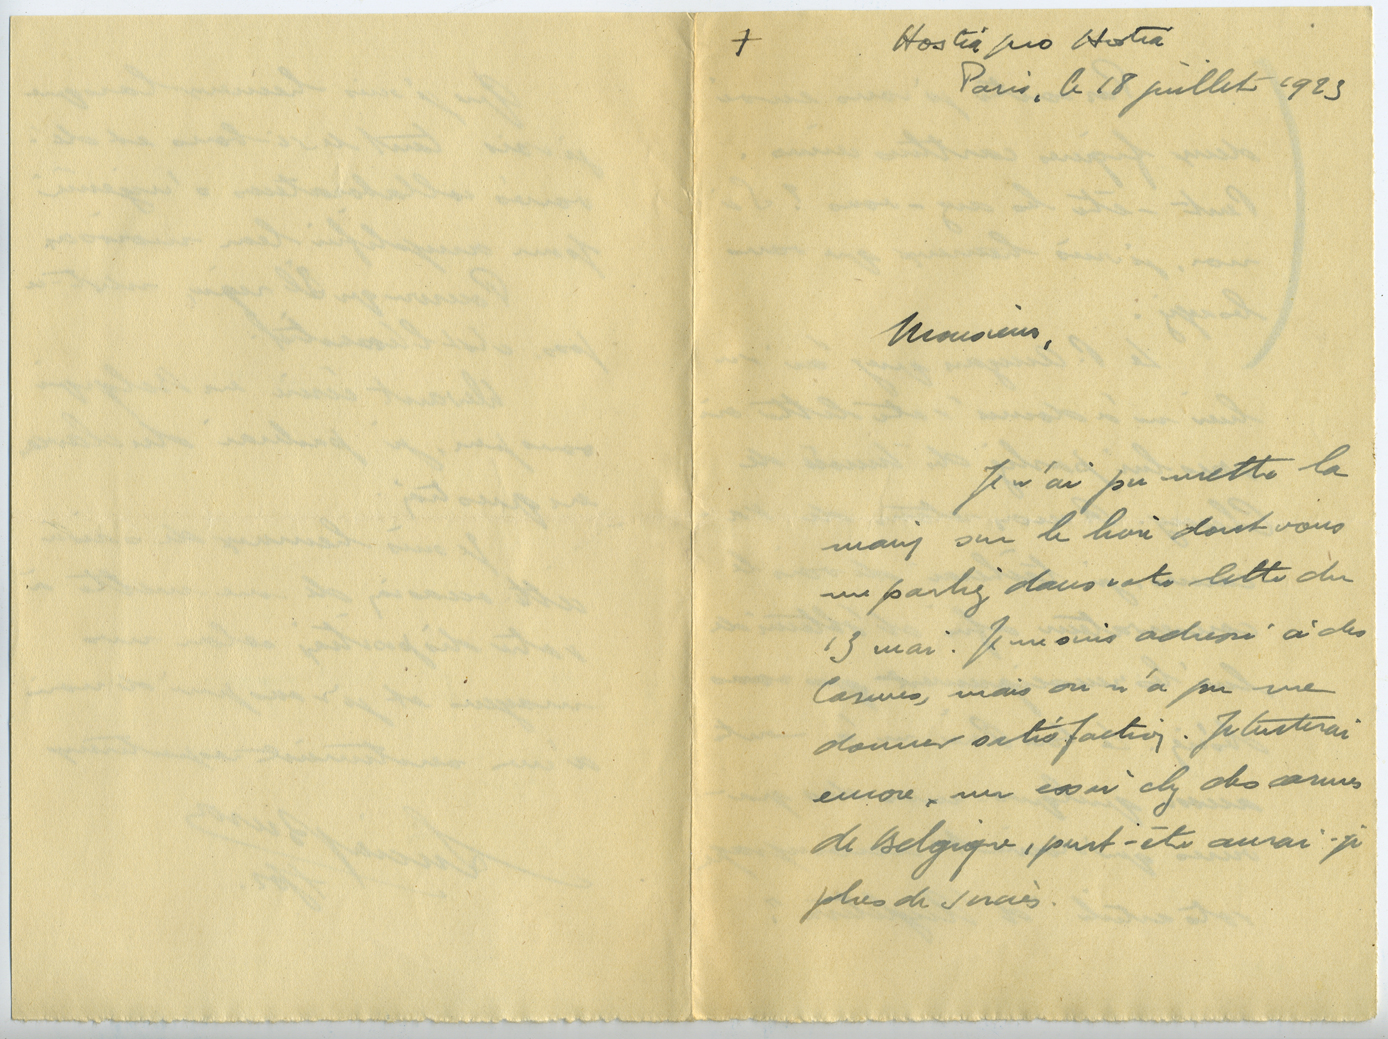 †
Hostia pro Hostiâ
Paris, le 18 juillet 1923
Monsieur,
Je n'ai pu mettre la
main sur le livre dont vous
me parliez dans votre lettre du
13 mai. Je me suis adressé à des
Carmes, mais on n'a pu me
donner satisfaction. Je tenterai
encore, un essai chez des carmes
de Belgique, peut-être aurai-je
plus de succès.